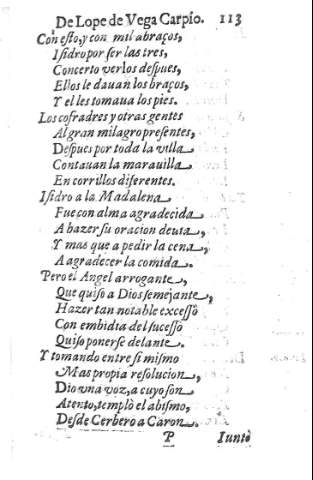 De Lope de Vega Carpio. 113
Con esto, y con mil abraços,
Isidro por ser las tres,
Concerto verlos despues,
Ellos le dauan los braços,
Y el les tomaua los pies.
Los cofradres y otras gentes
Al gran milagro presentes,
Despues por toda la villa
Contauan la marauilla
En corrillos diferentes.
Isidro a la Madalena
Fue con alma agradecida
A hazer su oracion deuta,
Y mas que a pedir la cena,
A agradezer la comida.
Pero el Angel arrogante,
Que quiso a Dios semejante,
Hazer tan notable excesso
Con embidia del sucesso
Quiso ponerse delante.
Y tomando entre si mismo
Mas propia resolucion,
Dio vna voz, a cuyo son
Atento, templò el abismo,
Desde Cerbero a Caron.
P Iunto